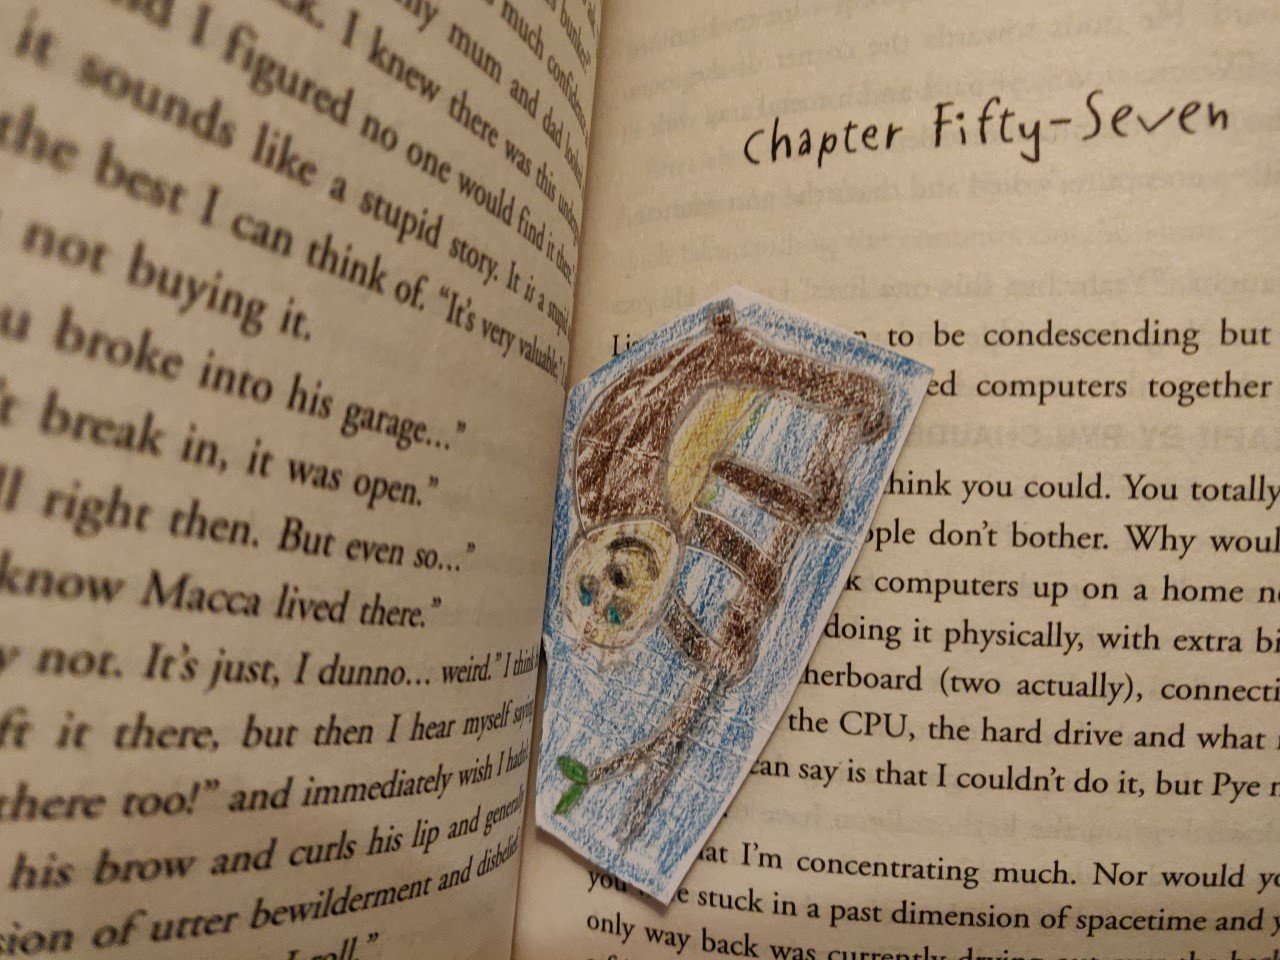 bunker?
much
my mum and dad
I knew there was this
I figured no one would find it then.
it sounds like a stupid story. It is a stupid
the best I can think of. “It’s very valuable.”
not buying it.
broke into his garage...”
break in, it was open.”
right then. But even so...”
know Macca lived there.”
not. It’s just, I dunno... weird.” I think
it there, but then I hear myself saying
there too!” and immediately wish I hadn't
his brow and curls his lip and generally
of utter bewilderment and disbelief
roll.”
Chapter Fifty-Seven
to be condescending but
computers together
think you could. You totally
don’t bother. Why
computers up on a home
doing it physically, with extra
(two actually),
the CPU, the hard drive and what
can say is that I couldn’t do it, but Pye
I’m concentrating much. Nor would
stuck in a past dimension of spacetime and
only way back was currently